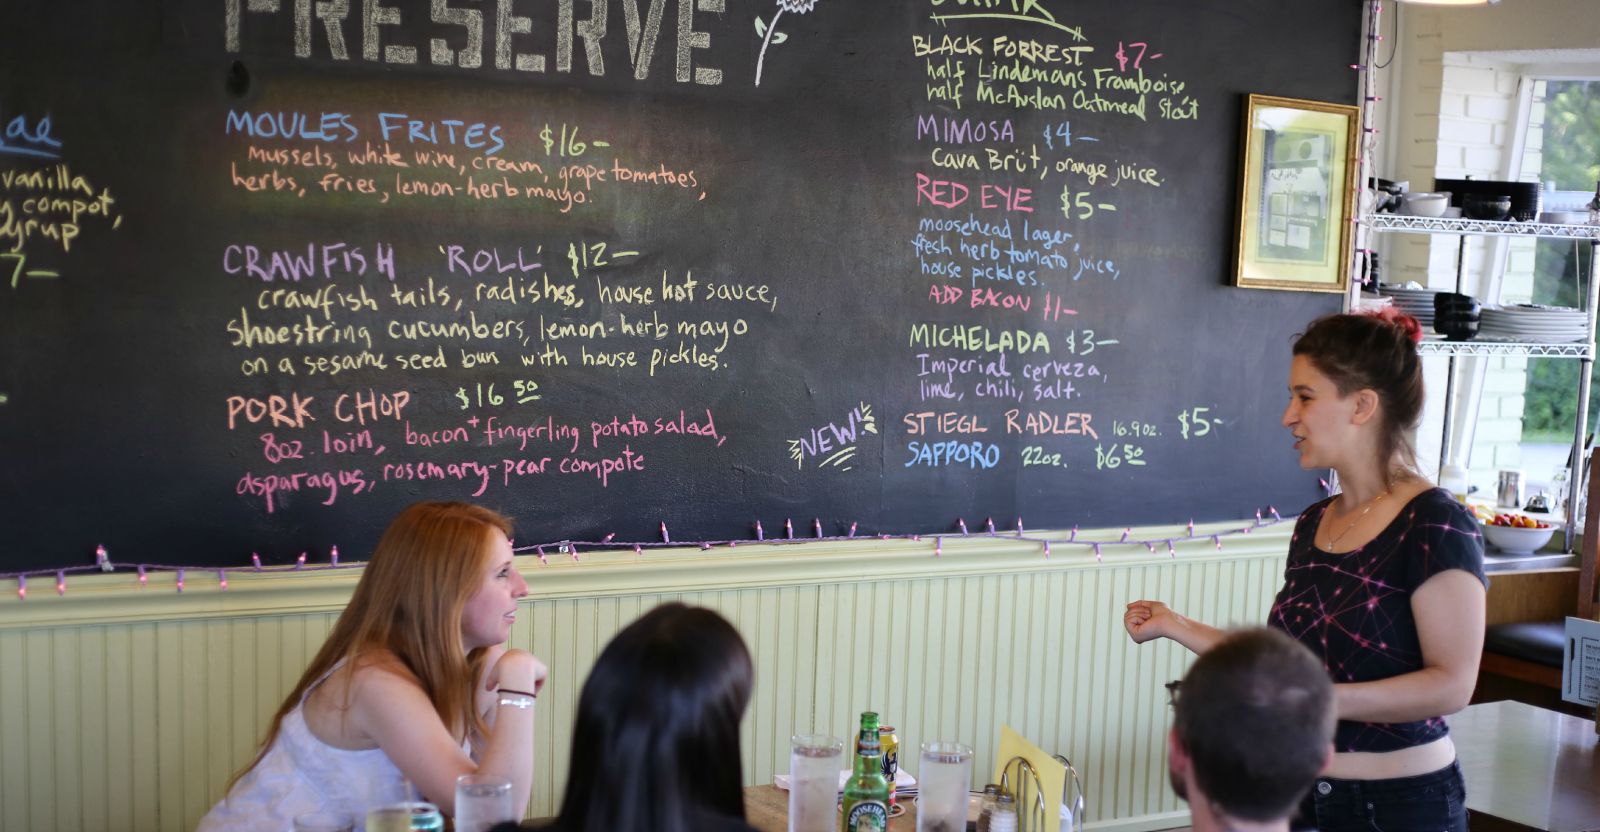 PRESERVE
vanilla
compot,
7-
MOULES FRITES $16-
mussels, white wine, cream, grape tomatoes,
herbs, fries, lemon-herb mayo.
CRAWFISH 'ROLL' $12-
crawfish tails, radishes, house hot sauce,
shoestring cucumbers, lemon-herb mayo
on a sesame seed bun with house pickles.
PORK CHOP $16 50
8oz. loin, bacon + fingerling potato salad,
asparagus, rosemary-pear compote
BLACK FORREST $7-
half Lindemans Framboise
half McAuslan Oatmeal Stout
MIMOSA $4-
Cava Brüt, orange juice.
RED EYE $5-
moosehead lager,
fresh herb tomato juice,
house pickles.
ADD BACON $1-
MICHELADA $3-
Imperial cerveza,
lime, chili, salt.
NEW! STIEGL RADLER 16.9oz. $5-
SAPPORO 22oz. $6 50